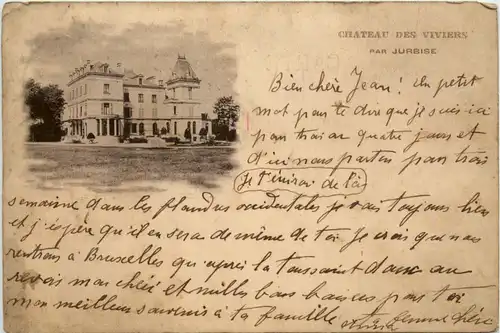 CHATEAU DES VIVIERS
PAR JURBISE
Bien chère Jean! Un petit
mot pour te dire que je suis ici
pour trois ou quatre jours et
d'ici nous partons pour trois
Je t'écrirai de là
semaine dans les flandres occidentales je vais toujours bien
et j'espère qu'il en sera de même de toi Je crois que nous
rentrons à Bruxelles qu'après la toussaint donc au
revoir mon chéri et milles bons baisers pour toi
mon meilleur souvenir à ta famille ta